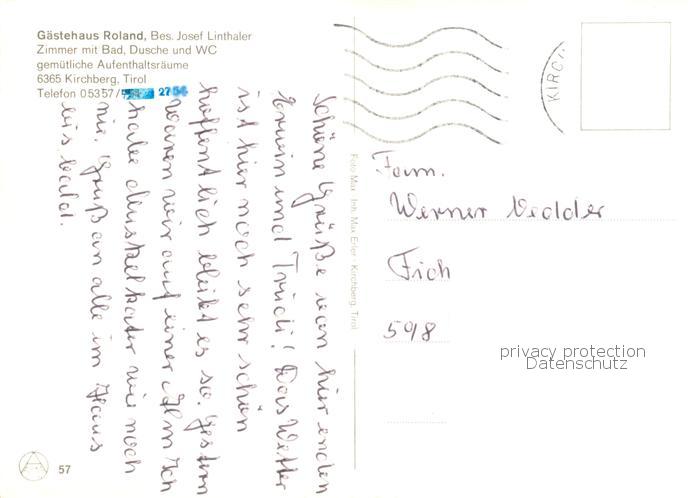 Gästehaus Roland, Bes. Josef Linthaler
Zimmer mit Bad, Dusche und WC
gemütliche Aufenthaltsräume
6365 Kirchberg, Tirol
Telefon 05357/ 2754
Schöne Grüße von hier senden
Erwin und Trudi! Das Wetter
ist hier noch sehr schön
hoffentlich bleibt es so. Gestern
waren wir auf einer Alm Ich
habe Muskelkater wie noch
nie. Gruß an alle im Haus
bis bald.
57
Foto Max, Inh. Max Erler · Kirchberg, Tirol
KIRCH
Fam.
Werner Vedder
Fich
5918
privacy protection
Datenschutz